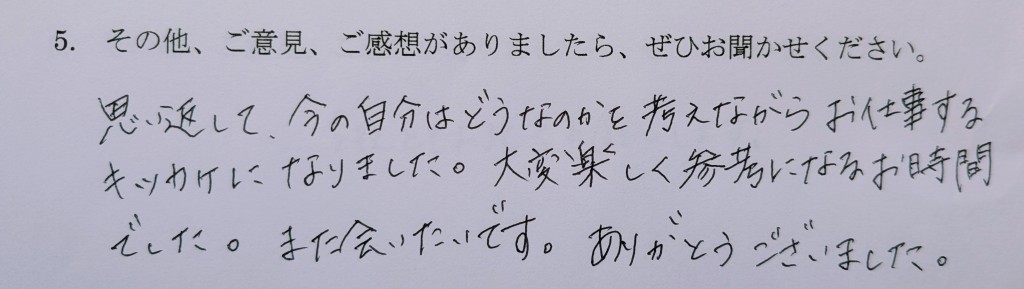 5. その他、ご意見、ご感想がありましたら、ぜひお聞かせください。
思い返して、今の自分はどうなのかを考えながらお仕事する
キッカケになりました。大変楽しく参考になるお時間
でした。また会いたいです。ありがとうございました。